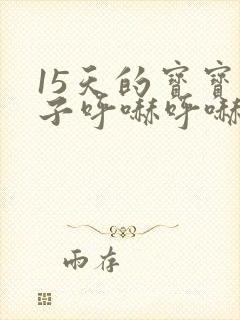 15天的宝宝
子呼嚇呼嚇
雨存